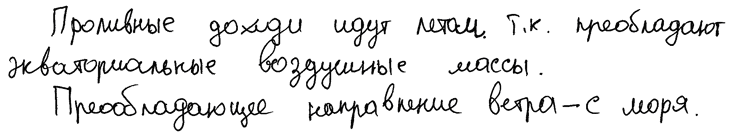 Проливные дожди идут летом. Т.к. преобладают
экваториальные воздушные массы.
Преообладающее направление ветра – с моря.